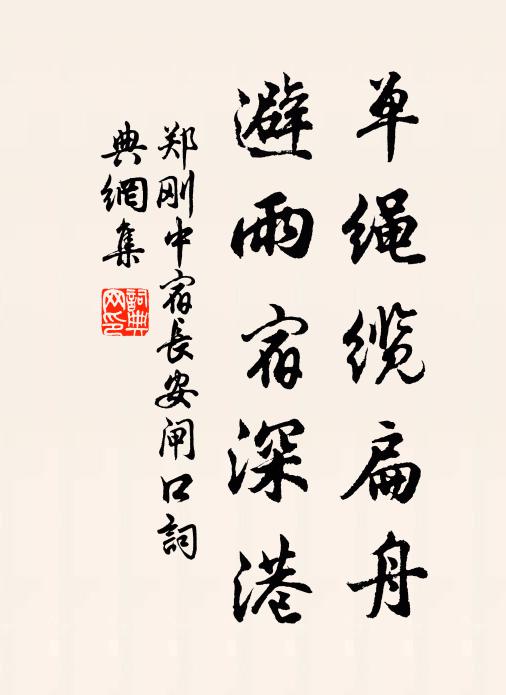 单绳缆扁舟
避雨宿深港
郑刚中宿长安闸口词
典網集
詞典
网印